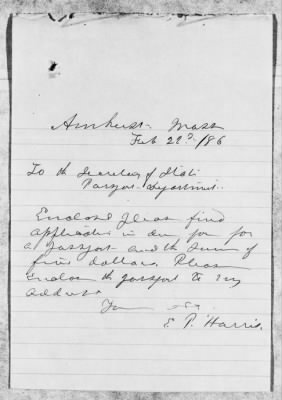 Amherst Mass
Feb 22d /86
To the Secretary of State
Passport Department.
Enclosed please find
application in due form for
a passport and the sum of
five dollars. Please
Enclose the passport to my
address
E P. Harris.